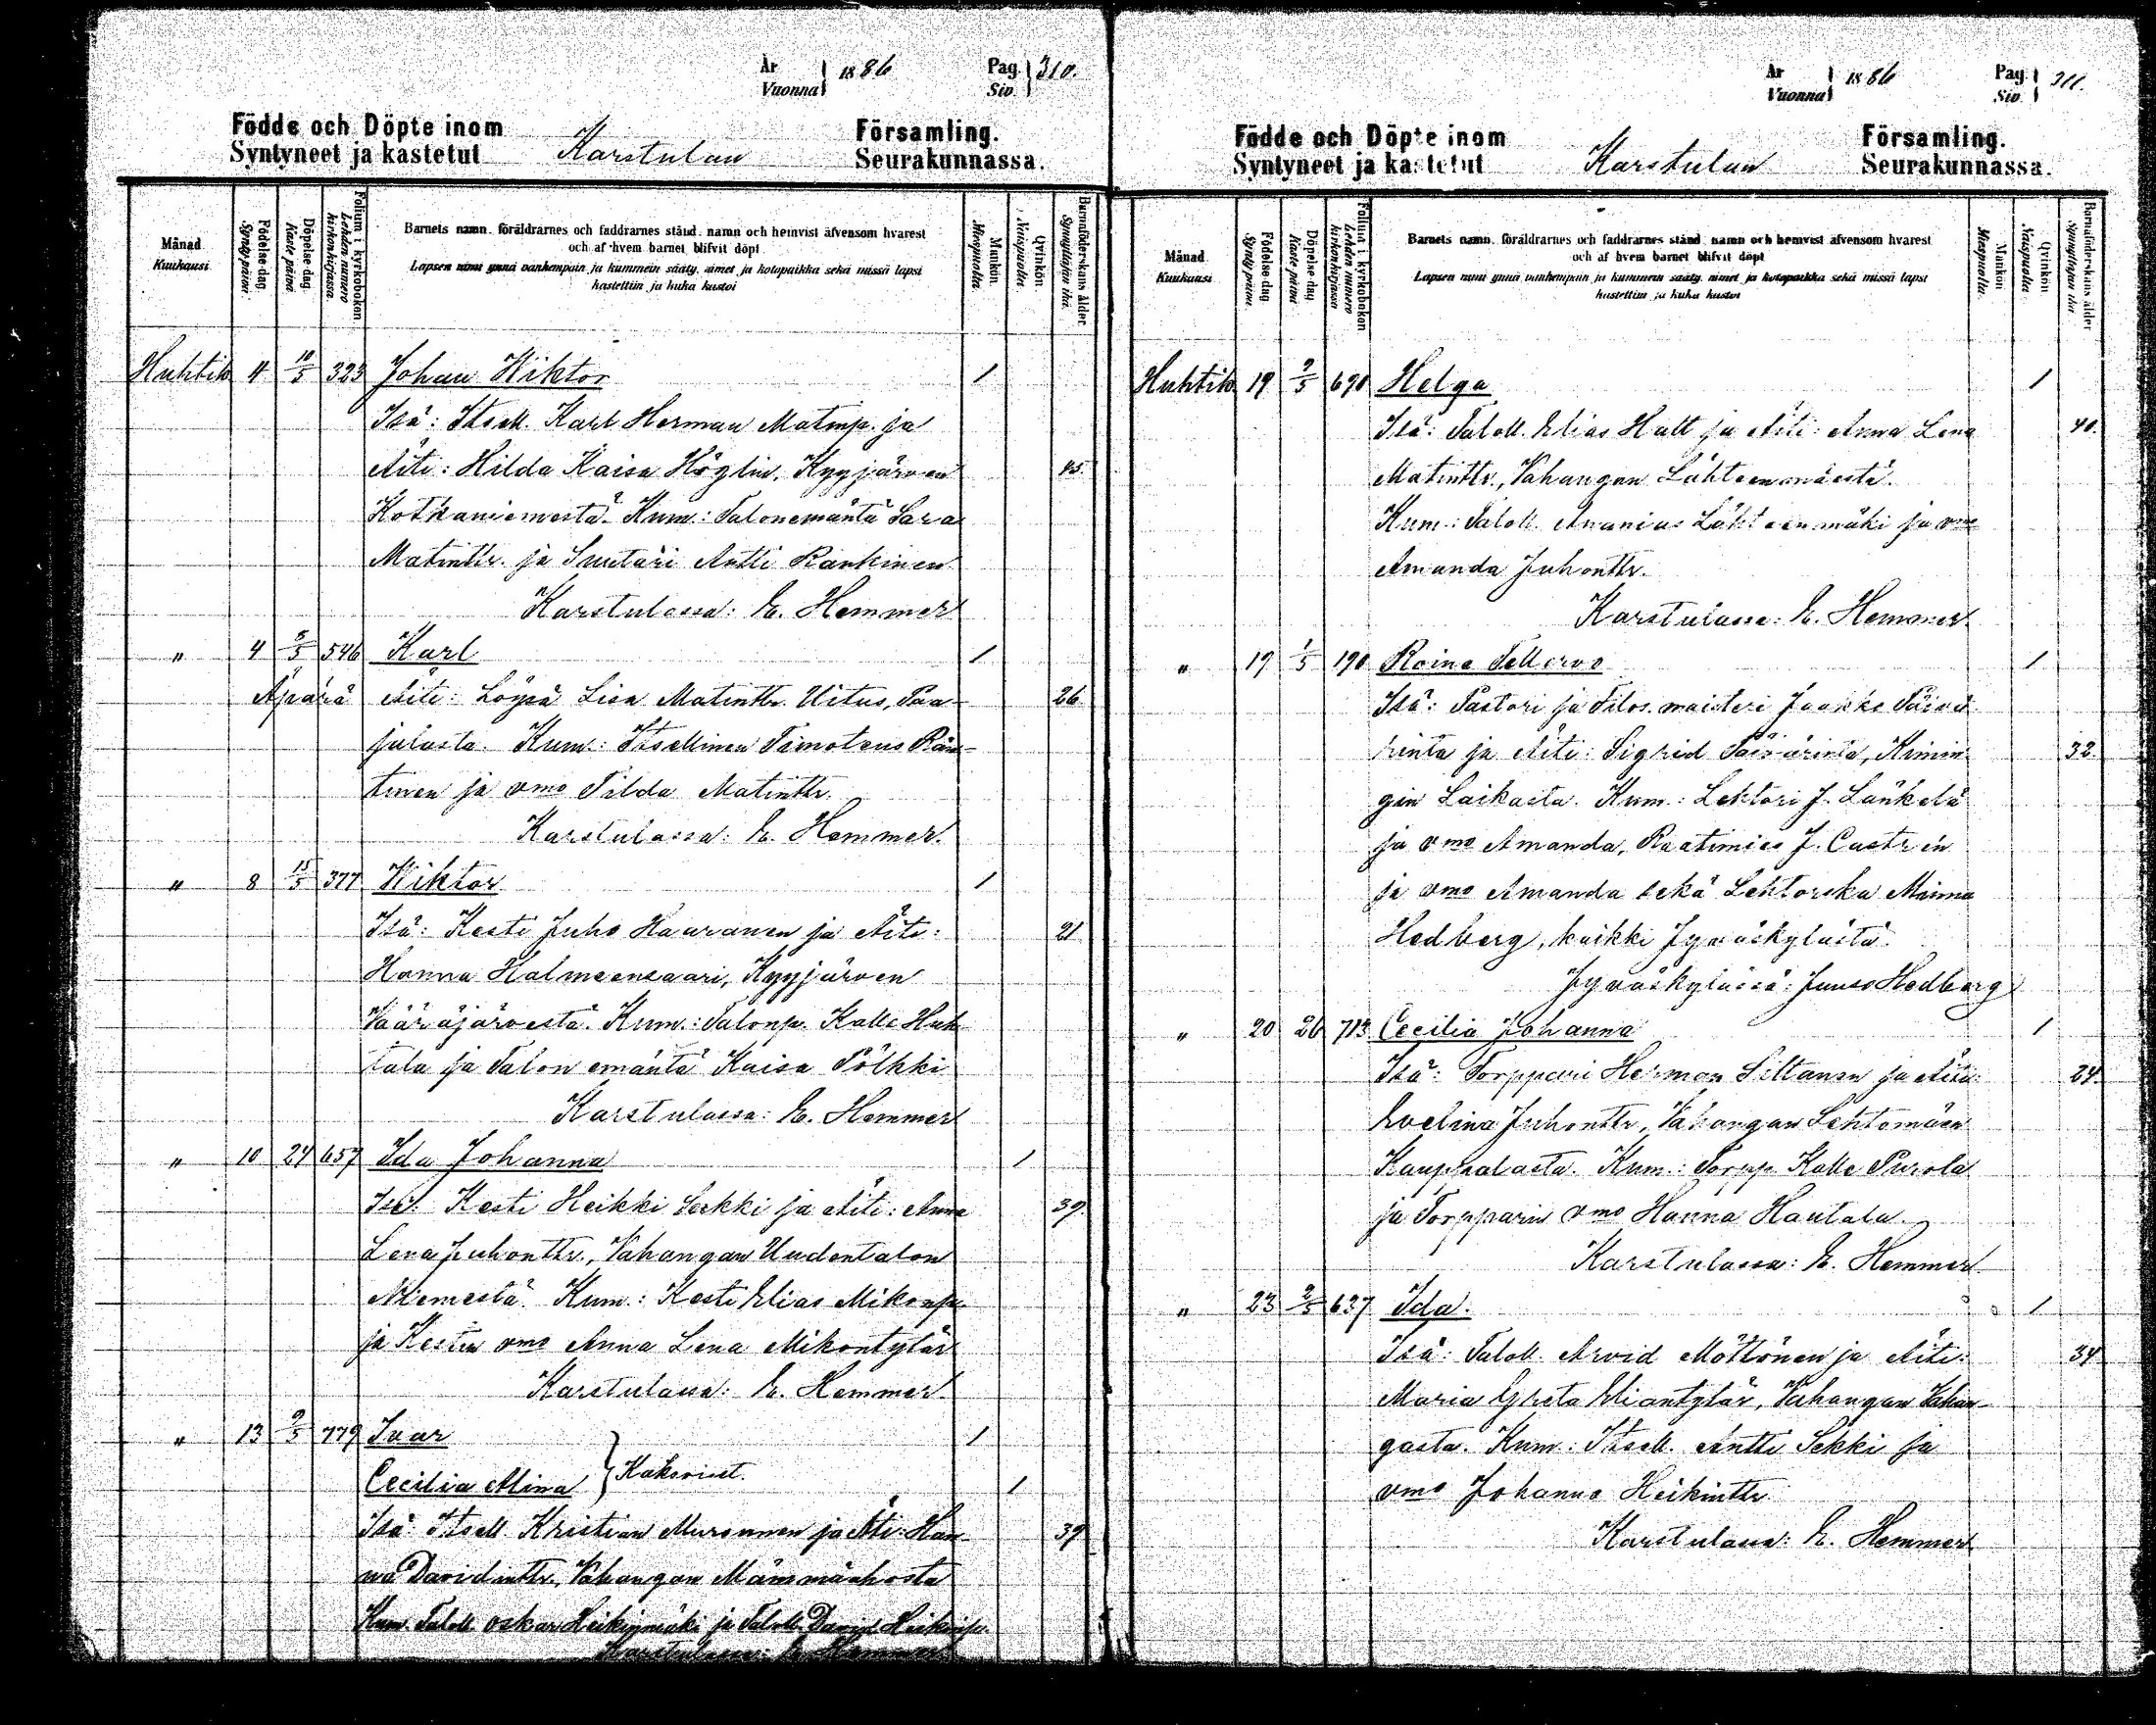 År
Vuonna
1886
Pag.
Siv.
310.
Födde och Döpte inom
Syntyneet ja kastetut
Karstulan
Församling.
Seurakunnassa.
Månad
Kuukausi
Födelse-dag.
Synty päivä.
Döpelse-dag.
Kaste päivä
Folium i kyrkoboken
Lehden numero
kirkonkirjassa
Barnets namn, föräldrarnes och faddrarnes stånd, namn och hemvist äfvensom hvarest
och af hvem barnet blifvit döpt
Lapsen nimi ynnä vanhempain ja kummein sääty, nimet ja kotopaikka sekä missä lapsi
kastettiin ja kuka kastoi
Mankön.
Miespuolta.
Qvinkön.
Naispuolta.
Barnaföderskans ålder.
Synnyttäjän ikä.
Huhtik 4 10/5 323 Johan Wiktor 1
Isä: Itsell. Karl Herman Matinp. ja
Äiti: Hilda Kaisa Höglin, Kyyjärven 45.
Kotkaniemestä. Kum: Talonemäntä Sara
Matintr. ja Suutari Antti Rankinen
Karstulassa: E. Hemmer
" 4 8/5 546 Karl 1
Äpärä Äiti: Löysä Lisa Matinttr. Uitus, Paa- 26.
julasta. Kum: Itsellinen Timoteus Rän-
tinen ja vmo Tilda Matinttr.
Karstulassa: E. Hemmer.
" 8 15/5 377 Wiktor 1
Isä: Kesti Juho Hauranen ja Äiti: 21.
Hanna Halmeensaari, Kyyjärven
Vääräjärvestä. Kum: Talonp. Kalle Huh-
tala ja Talon emäntä Kaisa Pölkki
Karstulassa: E. Hemmer
" 10 24 657 Ida Johanna 1
Isä: Kesti Heikki Sekki ja Äiti: Anna 39.
Lena Juhonttr., Vahangan Uudentalon
Niemestä. Kum: Kesti Elias Mikonp.
ja Kestin vmo Anna Lena Mikontytär
Karstulassa: E. Hemmer.
" 13 9/5 779 Ivar 1
Cecilia Alina } Kaksoiset. 1
Isä: Itsell. Kristian Muronnen ja Äiti: Han- 39
na Davidinttr., Vahangan
Kum. Taloll. Oskar Heikinmäki ja Taloll. David Heikinp.
Karstulassa: E. Hemmer
År
Vuonna
1886
Pag.
Siv.
311.
Födde och Döpte inom
Syntyneet ja kastetut
Karstulan
Församling.
Seurakunnassa.
Månad
Kuukausi
Födelse-dag
Synty päivä.
Döpelse-dag
Kaste päivä
Folium i kyrkoboken
Lehden numero
kirkonkirjassa
Barnets namn, föräldrarnes och faddrarnes stånd, namn och hemvist äfvensom hvarest
och af hvem barnet blifvit döpt
Lapsen nimi ynnä vanhempain ja kummein sääty, nimet ja kotopaikka sekä missä lapsi
kastettiin ja kuka kastoi
Mankön
Miespuolta.
Qvinkön
Naispuolta.
Barnaföderskans ålder
Synnyttäjän ikä
Huhtik. 19 9/5 690 Helga 1
Isä: Taloll. Elias Hatt ja Äiti: Anna Lena 40.
Matinttr., Vahangan Lähteenmäestä.
Kum: Taloll. Ananias Lähteenmäki ja vmo
Amanda Juhonttr.
Karstulassa: E. Hemmer.
" 19 1/5 190 Raina Tellervo 1
Isä: Pastori ja Filos. maisteri Jaakko Päivä-
rinta ja Äiti: Sigrid Päivärinta, Kimin- 32.
gin Laikasta. Kum: Lehtori J. Länkelä
ja vmo Amanda, Raatimies J. Castrén
ja vmo Amanda sekä Lehtorska Minna
Hedberg, kaikki Jyväskylästä.
Jyväskylässä: Juuso Hedberg
" 20 26 713 Cecilia Johanna 1
Isä: Torppari Herman Siltanen ja Äiti: 24.
Evelina Juhonttr., Vahangan Lehtomäen
Kauppalasta. Kum: Torpp. Kalle Purola
ja Torpparin vmo Hanna Hautala.
Karstulassa: E. Hemmer.
" 23 2/5 637 Ida. 1
Isä: Taloll. Arvid Möttönen ja Äiti: 34
Maria Greta Eliantytär, Vahangan Vahan-
gasta. Kum: Itsell. Antti Sekki ja
vmo Johanna Heikinttr.
Karstulassa: E. Hemmer